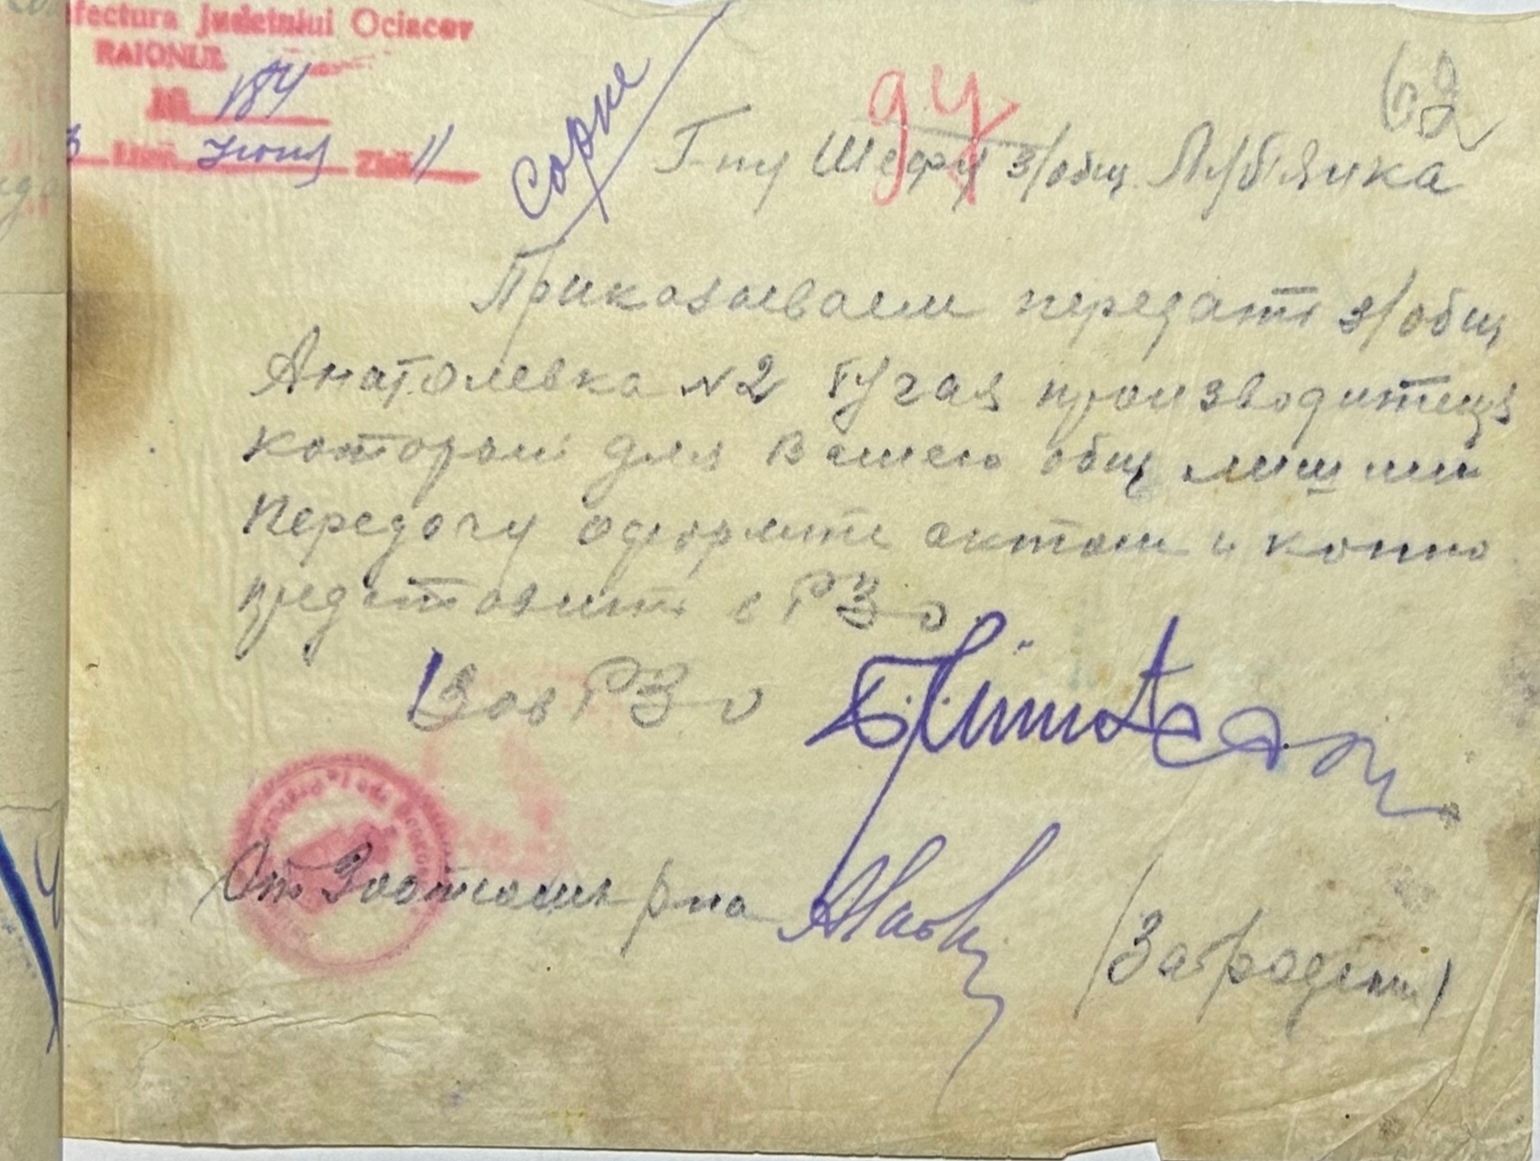 fectura Judetului Ociacov
RAIONUL
184
Июня 11
62
Сорне
Г-ну Шефу з/общ. Лубянка
Приказываем передать з/общ
Анатолевка №2 Бугая производителя
который для Вашего общ лишний
Передачу оформите актом и копию
представить в РЗо
Зав РЗо
От Зоотехник р-на